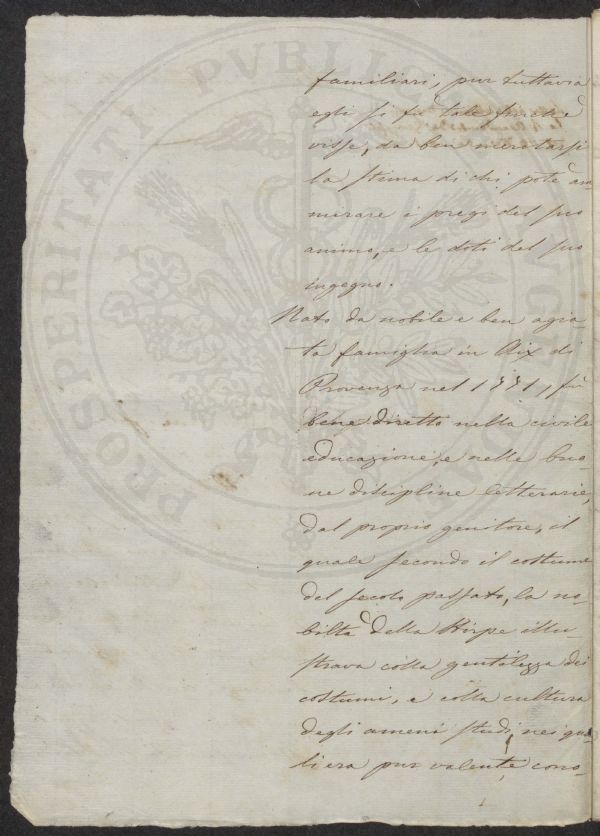 PROSPERITATI PVBLICAE AVGENDAE
familiari, pur tuttavia
egli si fù tale finchè
visse, da ben meritarsi
la stima di chi potè am
mirare i pregi del suo
animo, e le doti del suo
ingegno.
Nato da nobile e ben agia-
ta famiglia in Aix di
Provenza nel 1771, fù
bene diretto nella civile
educazione, e nelle buo-
ne discipline letterarie,
dal proprio genitore, il
quale secondo il costume
del secolo passato, la no-
biltà della stirpe illu-
strava colla gentilezza dei
costumi, e colla cultura
degli ameni studi nei qua
li era pur valente, cono-